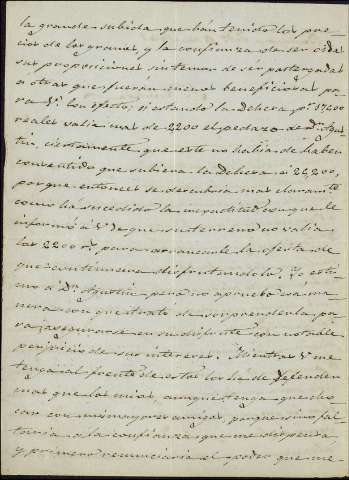 la grande subida que han tenido los pre-
cios de los granos, y la confianza de ser oida
sus proposiciones sin temor de ser postergadas
a otras que fueran menos beneficiosas pa-
ra V. Con efecto; si estando la Dehesa pr 17200
reales valia mas de 2200 el pedazo de Dn Agus-
tin, ciertamente que este no habia de haber
consentido que subiera la Dehesa a 22,200,
porque entonces se descubria mas claramte
como ha sucedido la inexactitud con que le
informó a V. de que su terreno no valia
los 2200 rs para arrancarle la oferta de
que continuara disfrutandolo. Yo esti-
mo a Dn Agustin pero no apruebo esa ma-
nera con que trató de sorprenderla pa-
ra asegurarse en su disfrute con notable
perjuicio de sus intereses. Mientras V. me
tenga al frente de estos los he de defender
mas que los mios, aunque tenga que cho-
car con mis mayores amigos, porque sino fal-
taria a la confianza que me dispensa
y primero renunciaria el poder que me